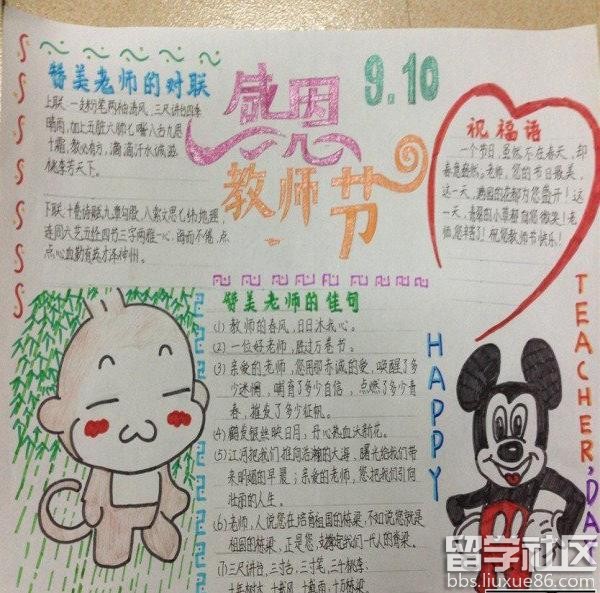 赞美老师的对联
感恩
9.10
教师节
上联:一支粉笔两袖清风,三尺讲台四季
晴雨,加上五脏六腑七嘴八舌九思
十霜,教必有方,滴滴汗水诚滋
桃李芳天下。
下联:十卷诗赋九章勾股,八索文思七纬地理
连同六艺五经四书三字两雅一心,诲而不倦,点
点心血勤育英才泽神州。
祝福语
一个节日,虽然不在春天,却
春意盎然。老师,您的节日最美,
这一天,满园的花都为您盛开!这
一天,青翠的小草都向您微笑!老
师,您辛苦了!祝您教师节快乐!
赞美老师的佳句
(1)教师的春风,日日沐我心。
(2)一位好老师,胜过万卷书。
(3)亲爱的老师,您用那赤诚的爱,唤醒了多
少迷惘,哺育了多少自信,点燃了多少青
春,摧发了多少征帆。
(4)鹤发银丝映日月,丹心热血沃新花。
(5)江河把我们推向浩瀚的大海,曙光给我们带
来明媚的早晨;亲爱的老师,您把我们引向
壮丽的人生。
(6)老师,人说您在培育祖国的栋梁,不如说您就是
祖国的栋梁,正是您,支撑起我们一代人的脊梁。
(7)三尺讲台,三寸舌,三寸笔,三千桃李;
HAPPY
TEACHER'DAY
留学社区
bbs.liuxue86.com